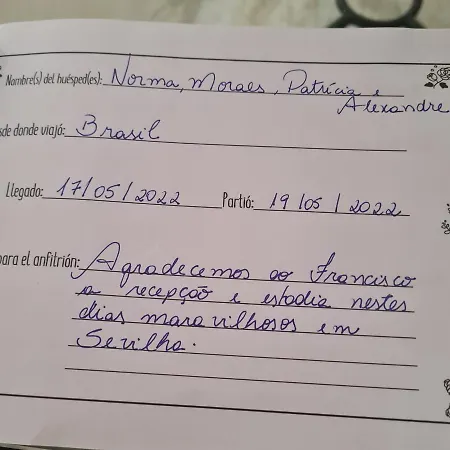 Nombre(s) del huésped(es): Norma, Moraes, Patrícia e
Alexandre
sde donde viajó: Brasil
Llegado: 17/05/2022 Partió: 19/05/2022
para el anfitrión: Agradecemos ao Francisco
a recepção e estadia nestes
dias maravilhosos em
Sevilha.